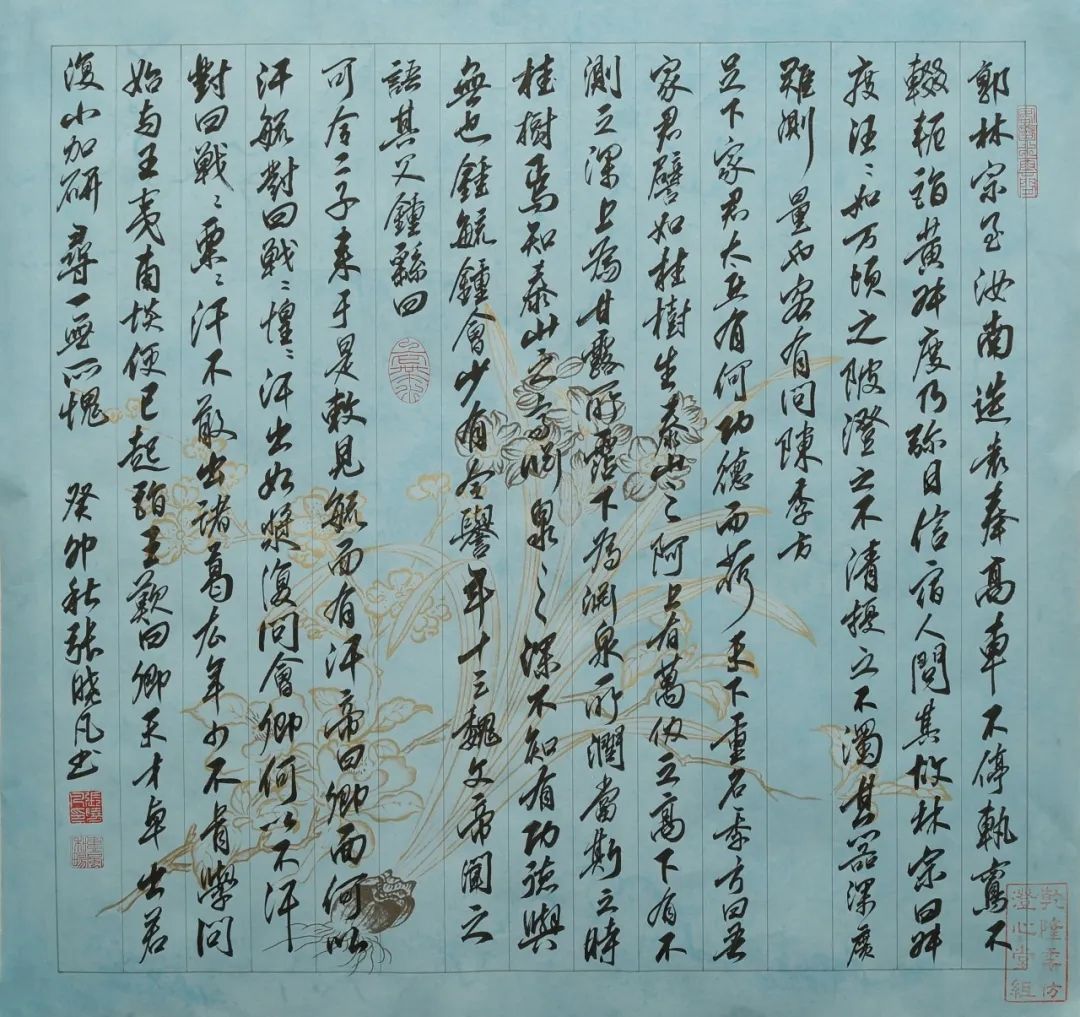 郭林宗至汝南造袁奉高車不停軌鸞不
輟軛詣黄叔度乃彌日信宿人問其故林宗曰叔
度汪〻如万頃之陂澄之不清擾之不濁其器深廣
難測量也客有問陳季方
足下家君太丘有何功德而荷天下重名季方曰吾
家君譬如桂樹生泰山之阿上有萬仞之高下有不
測之深上為甘露所霑下為淵泉所潤當斯之時
桂樹焉知泰山之高淵泉之深不知有功德與
無也鍾毓鍾會少有令譽年十三魏文帝聞之
語其父鍾繇曰
可令二子来于是敕見毓面有汗帝曰卿面何以
汗毓對曰戰〻惶〻汗出如漿復問會卿何以不汗
對曰戰〻栗〻汗不敢出諸葛厷年少不肯學問
始与王夷甫談便已超詣王歎曰卿天才卓出若
復小加研尋一無所愧 癸卯秋張曉凡书
乾隆年仿
澄心堂紙